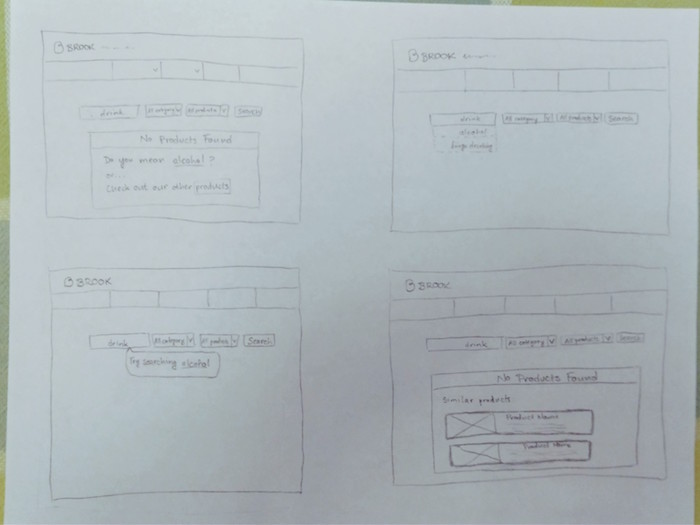 B BROOK
drink All category All products Search
No Products Found
Do you mean alcohol ?
or....
Check out our other products
B BROOK
drink All category All products Search
alcohol
binge drinking
B BROOK
drink All category All products Search
Try searching alcohol
B BROOK
drink All category All products Search
No Products Found
Similar products
Product Name
Product Name